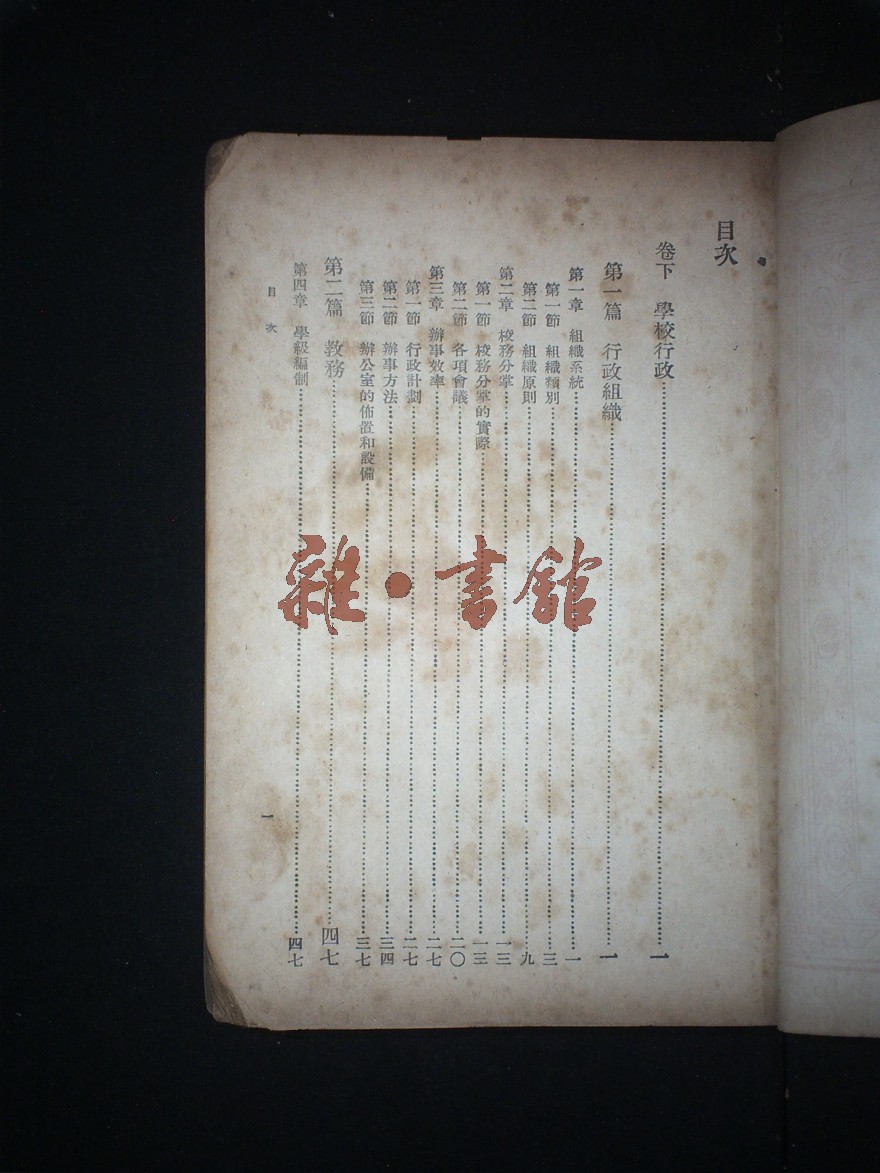 目次
卷下　學校行政……一
第一篇　行政組織……一
第一章　組織系統……一
第一節　組織類別……三
第二節　組織原則……九
第二章　校務分掌……一三
第一節　校務分掌的實際……一三
第二節　各項會議……二〇
第三章　辦事效率……二七
第一節　行政計劃……二七
第二節　辦事方法……三四
第三節　辦公室的佈置和設備……三七
第二篇　教務……四七
第四章　學級編制……四七
目次　一
雜·書館